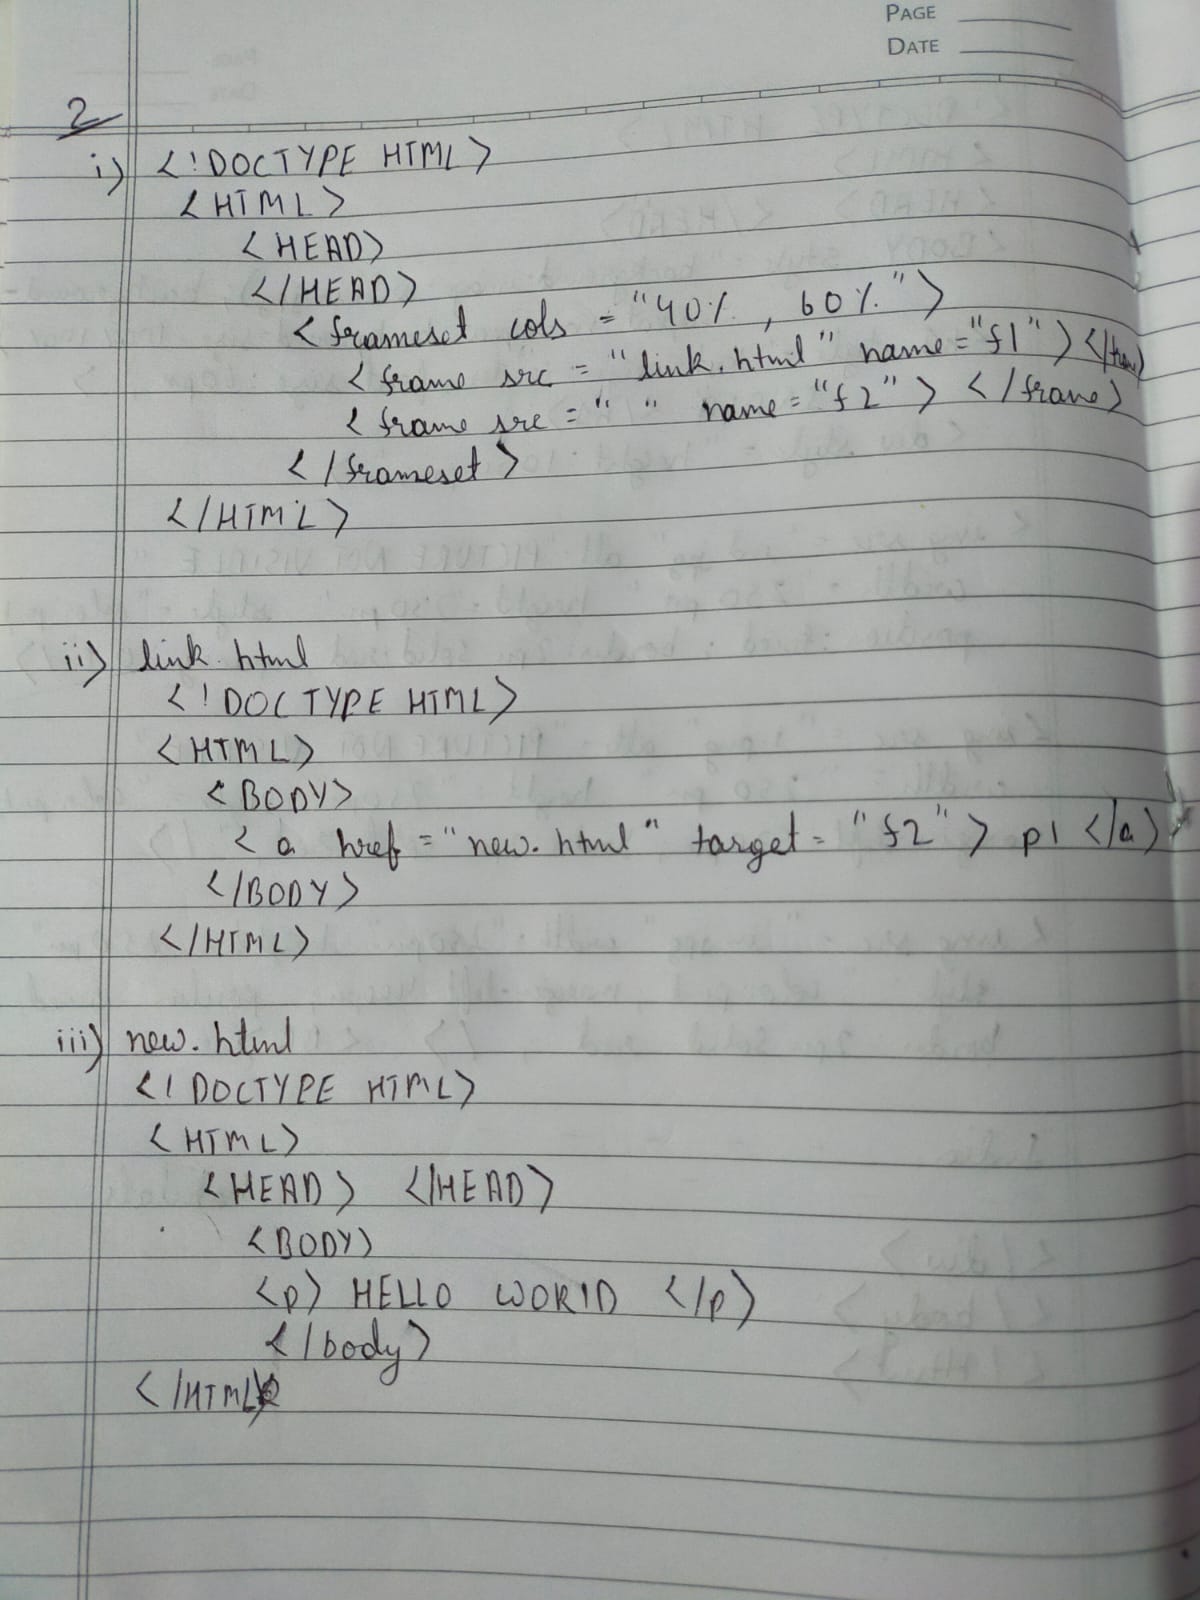 PAGE
DATE
2
i) <!DOCTYPE HTML>
<HTML>
<HEAD>
</HEAD>
<frameset cols = "40%, 60%">
<frame src = "link.html" name="f1"> </
<frame src = " " name = "f2"> </frame>
</frameset>
</HTML>
ii) link.html
<!DOCTYPE HTML>
<HTML>
<BODY>
<a href = "new.html" target = "f2"> p1 </a>
</BODY>
</HTML>
iii) new.html
<!DOCTYPE HTML>
<HTML>
<HEAD> </HEAD>
<BODY>
<p> HELLO WORLD </p>
</body>
</HTML>